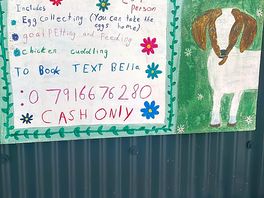 Includes
person
Egg collecting (You can take the
eggs home)
goat Petting and Feeding
chicken cuddling
TO BOOK TEXT Bella
:0 7916676280
CASH ONLY